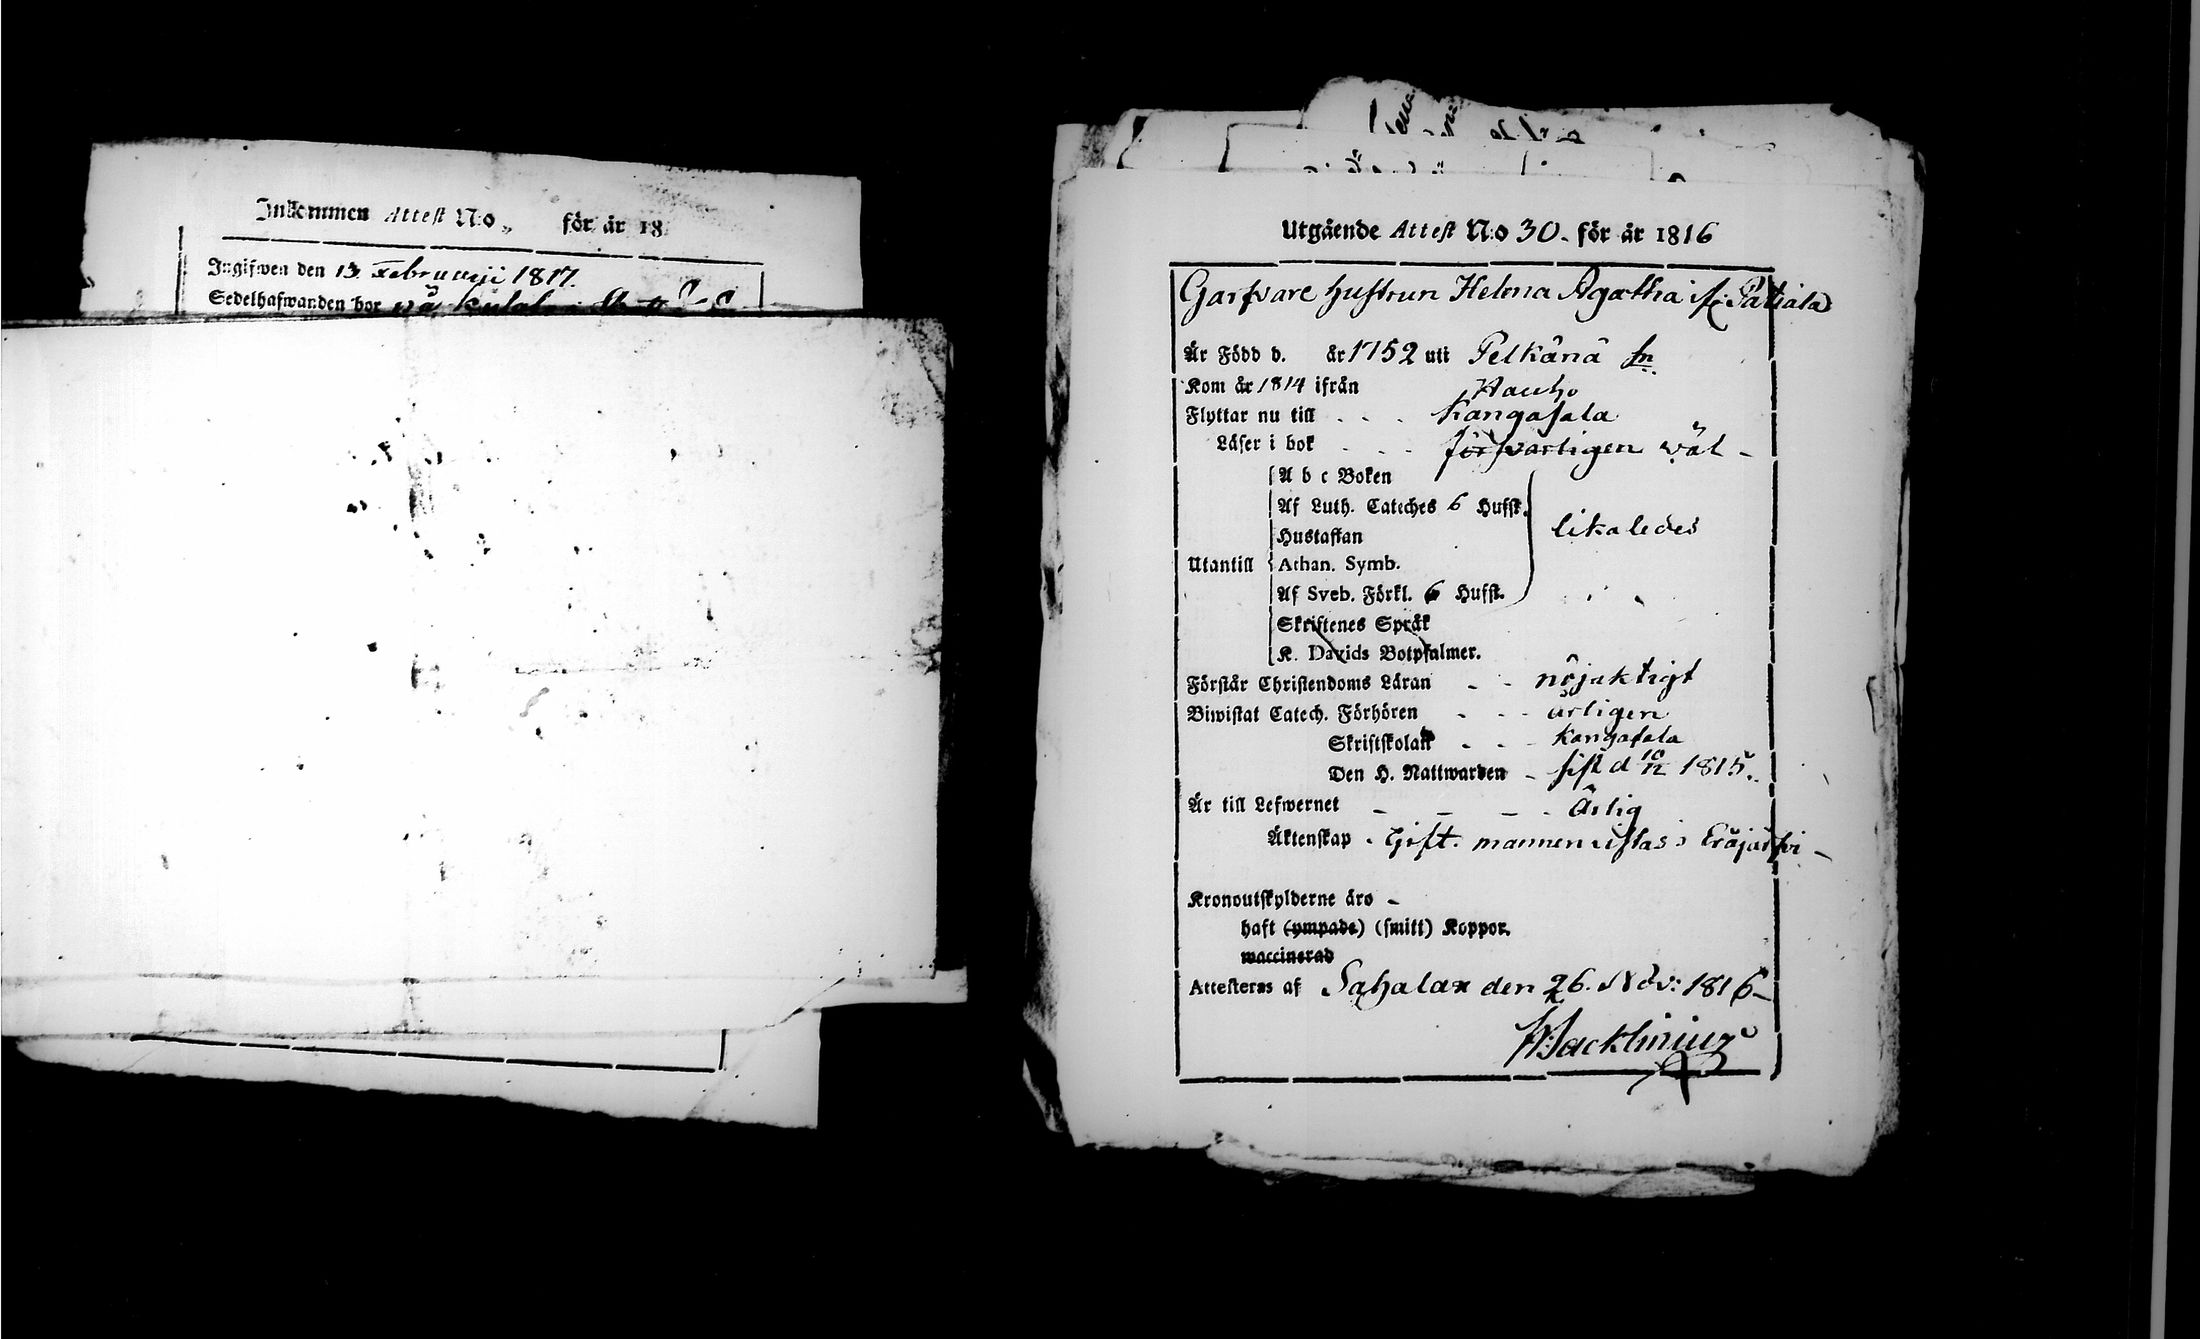 Inkommen Attest N:o „ för år 18
Ingifwen den 13 Februarii 1817.
Sedelhafwanden bor på
Utgående Attest N:o 30. för år 1816
Garfvare hustrun Helena Agatha
Är Född d. år 1752 uti Pelkänä sn
Kom år 1814 ifrån Hauho
Flyttar nu till - - - Kangasala
Läser i bok - - - försvarligen wäl -
A b c Boken
Af Luth. Cateches 6 Hufst.
Hustaflan
likaledes
Utantill Athan. Symb.
Af Sveb. Förkl. 6 Hufst.
Skriftenes Språk
K. Davids Botpsalmer.
Förstår Christendoms Läran - - nöjaktigt
Biwistat Catech. Förhören - - - årligen
Skriftskolan - - - Kangasala
Den H. Nattwarden - sist d 10/12 1815.
Är till Lefwernet - - - - Ärlig
Äktenskap - Gift. mannen vistas i Eräjärfvi -
Kronoutskylderne äro -
haft (ympade) (smitt) Koppor.
waccinerad
Attesteras af Sahalax den 26. Nov: 1816 -